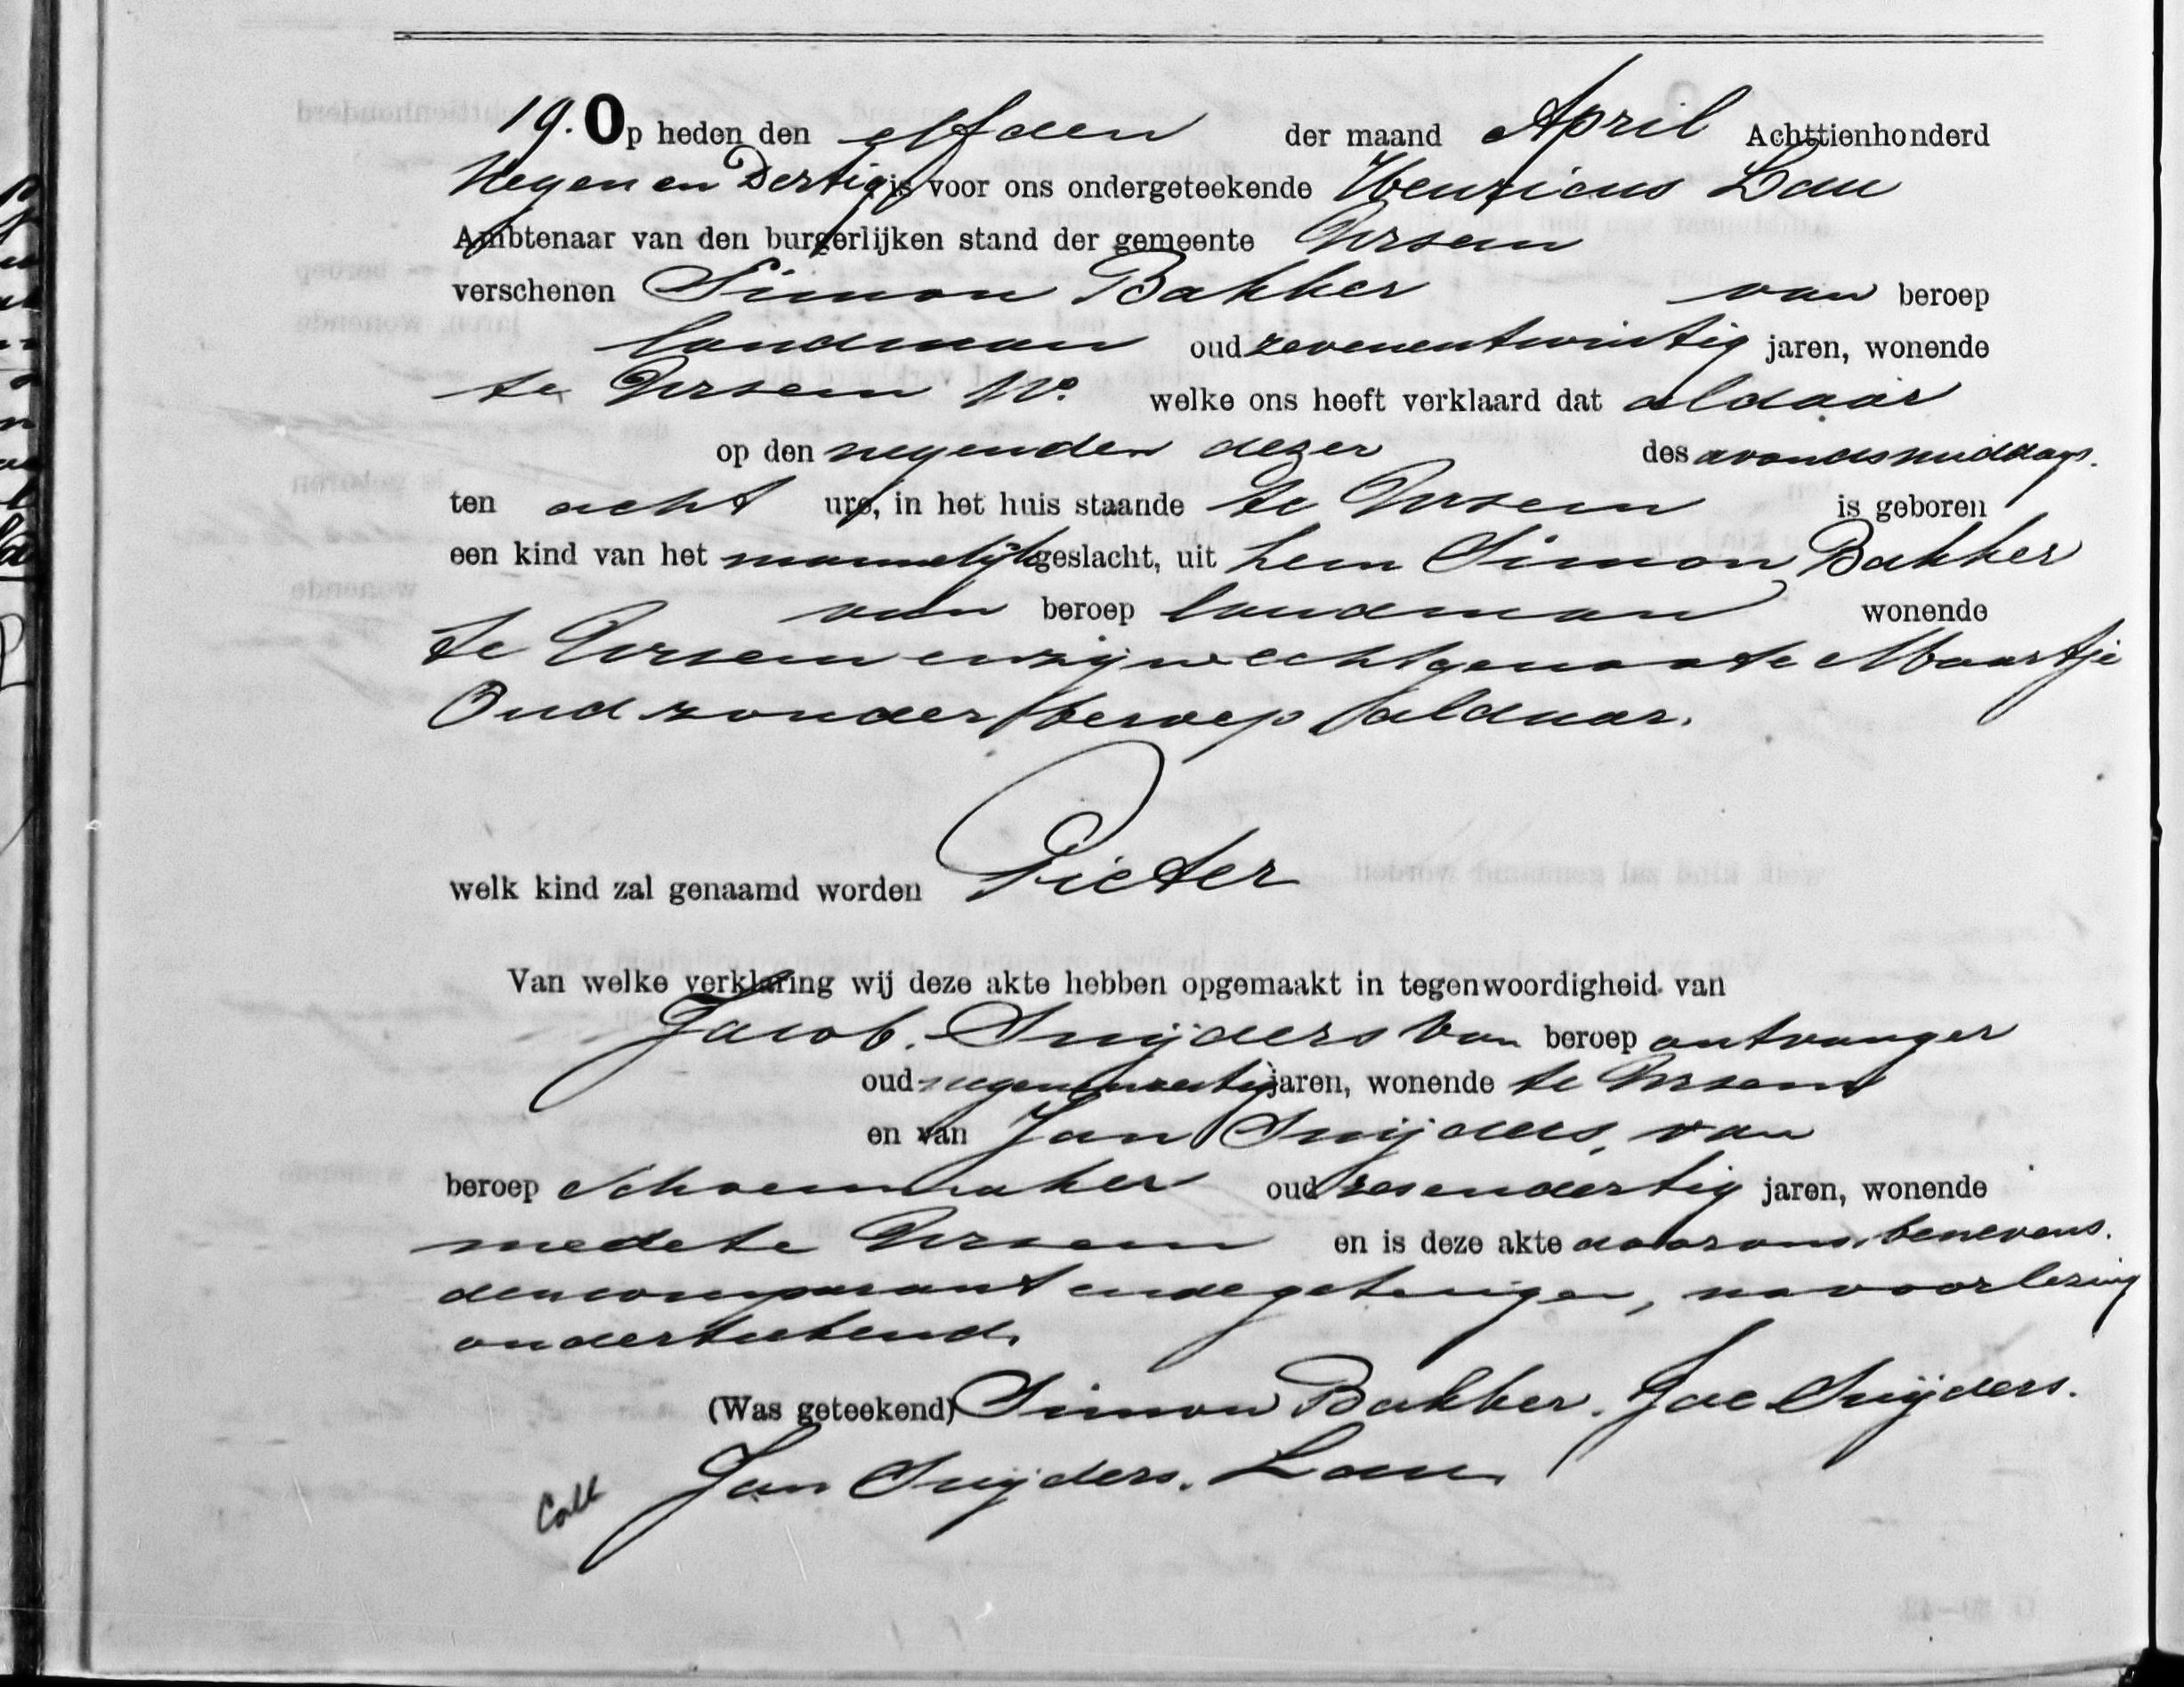 19. Op heden den elfden der maand April Achttienhonderd
Negen en Dertig is voor ons ondergeteekende Henricus Lau
Ambtenaar van den burgerlijken stand der gemeente Ursem
verschenen Simon Bakker van beroep
landman oud zevenentwintig jaren, wonende
te Ursem No. welke ons heeft verklaard dat aldaar
op den negenden dezer des avondsmiddags.
ten acht ure, in het huis staande te Ursem is geboren
een kind van het mannelijk geslacht, uit hem Simon Bakker
van beroep landman wonende
te Ursem en zijne echtgenoote Maartje
Oud zonder beroep aldaar.
welk kind zal genaamd worden Pieter
Van welke verklaring wij deze akte hebben opgemaakt in tegenwoordigheid van
Jacob. Snijders van beroep ontvanger
oud jaren, wonende te Ursem
en van Jan Snijders, van
beroep Schoenmaker oud zesendertig jaren, wonende
mede te Ursem en is deze akte door ons, benevens.
den comparant en de getuigen, na voorlezing
onderteekend.
(Was geteekend) Simon Bakker. Jac Snijders.
Jan Snijders. Lau.
Coll